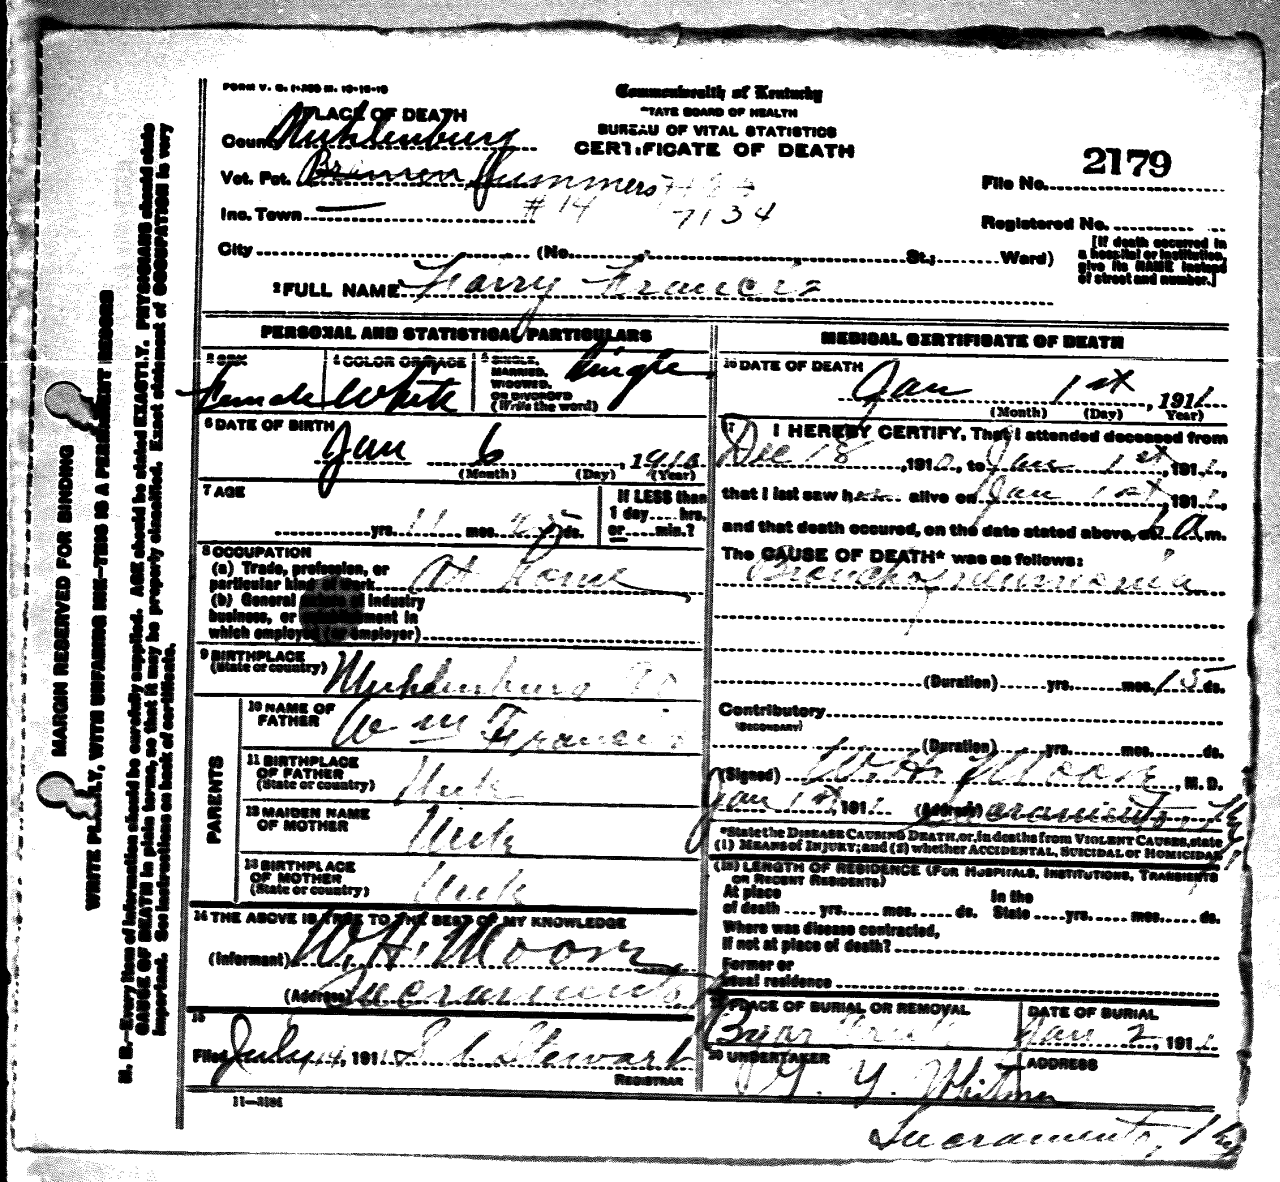 FORM V. S. 1-
Commonwealth of Kentucky
STATE BOARD OF HEALTH
BUREAU OF VITAL STATISTICS
CERTIFICATE OF DEATH
PLACE OF DEATH
County Muhlenburg
Vot. Pct. Bremen Summers
Inc. Town # 14 7134
File No. 2179
Registered No.
City (No. St.; Ward)
[If death occurred in a hospital or institution, give its NAME instead of street and number.]
2 FULL NAME Harry Francis
PERSONAL AND STATISTICAL PARTICULARS
3 SEX Female
4 COLOR OR RACE White
5 SINGLE, MARRIED, WIDOWED, OR DIVORCED (Write the word) Single
6 DATE OF BIRTH Jan 6, 1910
(Month) (Day) (Year)
7 AGE yrs. 11 mos. 25 ds.
If LESS than 1 day hrs. or min.?
8 OCCUPATION
(a) Trade, profession, or particular kind of work At Home
(b) General nature of industry business, or establishment in which employed (or employer)
9 BIRTHPLACE (State or country) Muhlenburg Co
PARENTS
10 NAME OF FATHER Wm Francis
11 BIRTHPLACE OF FATHER (State or country) Unk
12 MAIDEN NAME OF MOTHER Unk
13 BIRTHPLACE OF MOTHER (State or country) Unk
14 THE ABOVE IS TRUE TO THE BEST OF MY KNOWLEDGE
(Informant) W. H. Moore
(Address) Sacramento
15
Filed July 14, 191 Stewart
REGISTRAR
11—3184
MEDICAL CERTIFICATE OF DEATH
16 DATE OF DEATH Jan 1st, 1911
(Month) (Day) (Year)
17 I HEREBY CERTIFY, That I attended deceased from
Dec 18, 1910, to Jan 1st, 1911,
that I last saw her alive on Jan 1st, 1911,
and that death occured, on the date stated above, at 6 a m.
The CAUSE OF DEATH* was as follows:
Broncho pneumonia
(Duration) yrs. mos. 15 ds.
Contributory
(SECONDARY)
(Duration) yrs. mos. ds.
(Signed) W. H. Moore, M. D.
Jan 1st, 1911 (Address) Sacramento, Ky
*State the DISEASE CAUSING DEATH, or, in deaths from VIOLENT CAUSES, state
(1) MEANS of INJURY; and (2) whether ACCIDENTAL, SUICIDAL or HOMICIDAL
(18) LENGTH OF RESIDENCE (FOR HOSPITALS, INSTITUTIONS, TRANSIENTS OR RECENT RESIDENTS)
At place of death yrs. mos. ds. In the State yrs. mos. ds.
Where was disease contracted, If not at place of death?
Former or usual residence
19 PLACE OF BURIAL OR REMOVAL
DATE OF BURIAL Jan 2, 1911
20 UNDERTAKER
ADDRESS
Sacramento, Ky
MARGIN RESERVED FOR BINDING
WRITE PLAINLY, WITH UNFADING INK—THIS IS A PERMANENT RECORD
N. B.—Every item of information should be carefully supplied. AGE should be stated EXACTLY. PHYSICIANS should state
CAUSE OF DEATH in plain terms, so that it may be properly classified. Exact statement of OCCUPATION is very
important. See instructions on back of certificate.